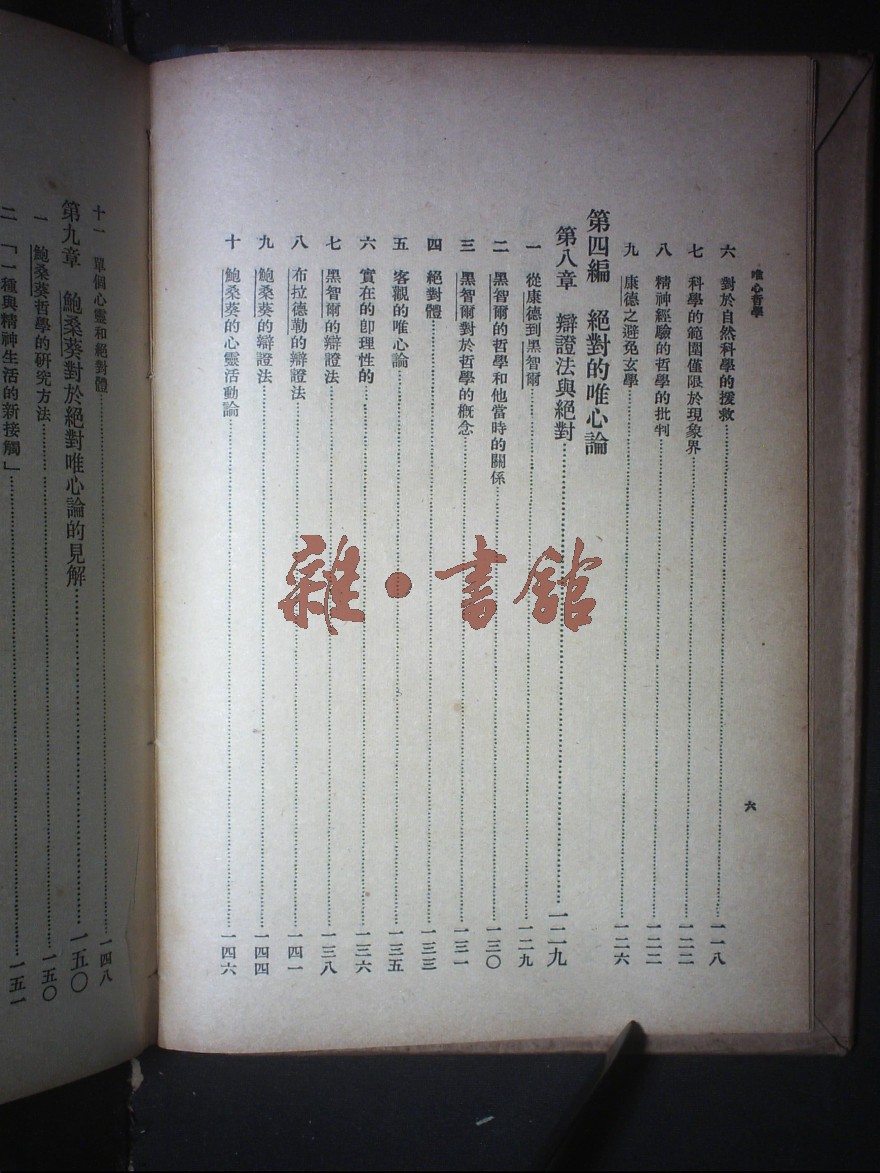 唯心哲學
六
六 對於自然科學的援救……一一八
七 科學的範圍僅限於現象界……一二二
八 精神經驗的哲學的批判……一二二
九 康德之避免玄學……一二六
第四編 絕對的唯心論
第八章 辯證法與絕對……一二九
一 從康德到黑智爾……一二九
二 黑智爾的哲學和他當時的關係……一三〇
三 黑智爾對於哲學的概念……一三一
四 絕對體……一三三
五 客觀的唯心論……一三五
六 實在的卽理性的……一三六
七 黑智爾的辯證法……一三八
八 布拉德勒的辯證法……一四一
九 鮑桑葵的辯證法……一四四
十 鮑桑葵的心靈活動論……一四六
十一 單個心靈和絕對體……一四八
第九章 鮑桑葵對於絕對唯心論的見解……一五〇
一 鮑桑葵哲學的研究方法……一五〇
二 「一種與精神生活的新接觸」……一五一
雜·書館